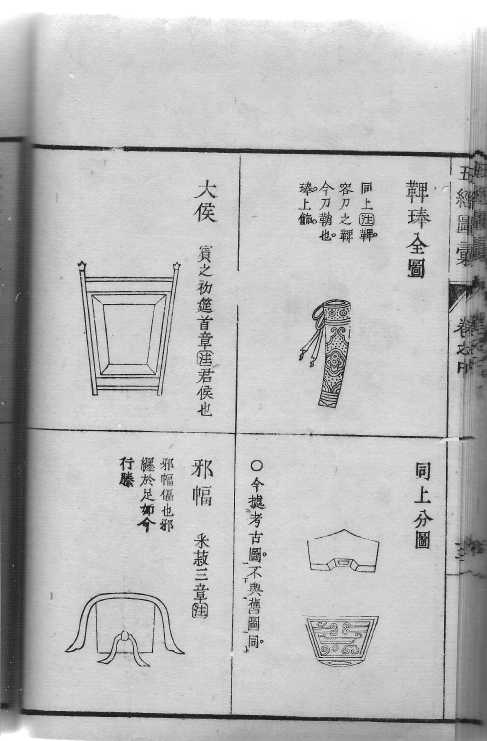 五經圖彙
卷之中
鞞琫全圖
同上㊟鞞。
容刀之鞞
今刀鞘也。
琫上飾。
同上分圖
○今據考古圖。不與舊圖同。
大侯
賓之初筵首章㊟君侯也
邪幅
采菽三章㊟
邪幅偪也邪
纏於足如今
行縢